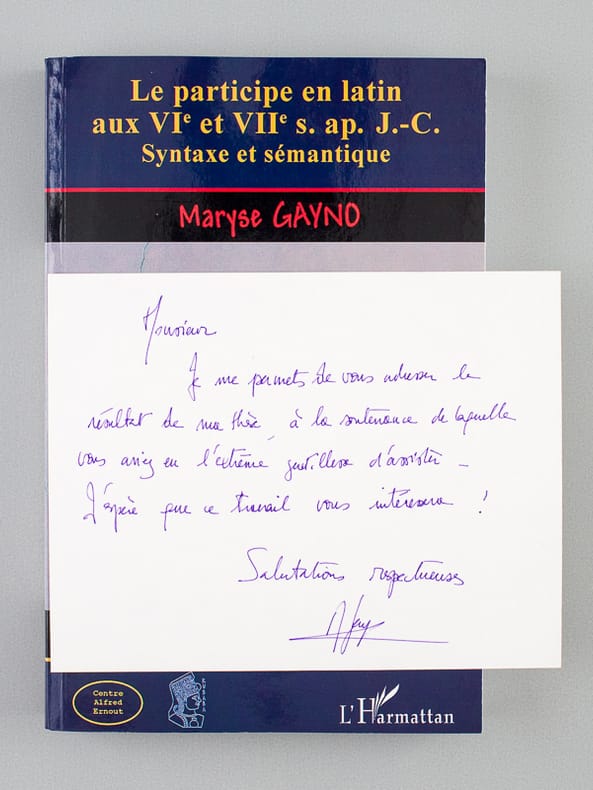 Le participe en latin
aux VIe et VIIe s. ap. J.-C.
Syntaxe et sémantique
Maryse GAYNO
Monsieur
Je me permets de vous adresser le
résultat de ma thèse, à la soutenance de laquelle
vous aviez eu l'extrême gentillesse d'assister –
J'espère que ce travail vous intéressera !
Salutations respectueuses
Centre
Alfred
Ernout
KUBABA
L'Harmattan